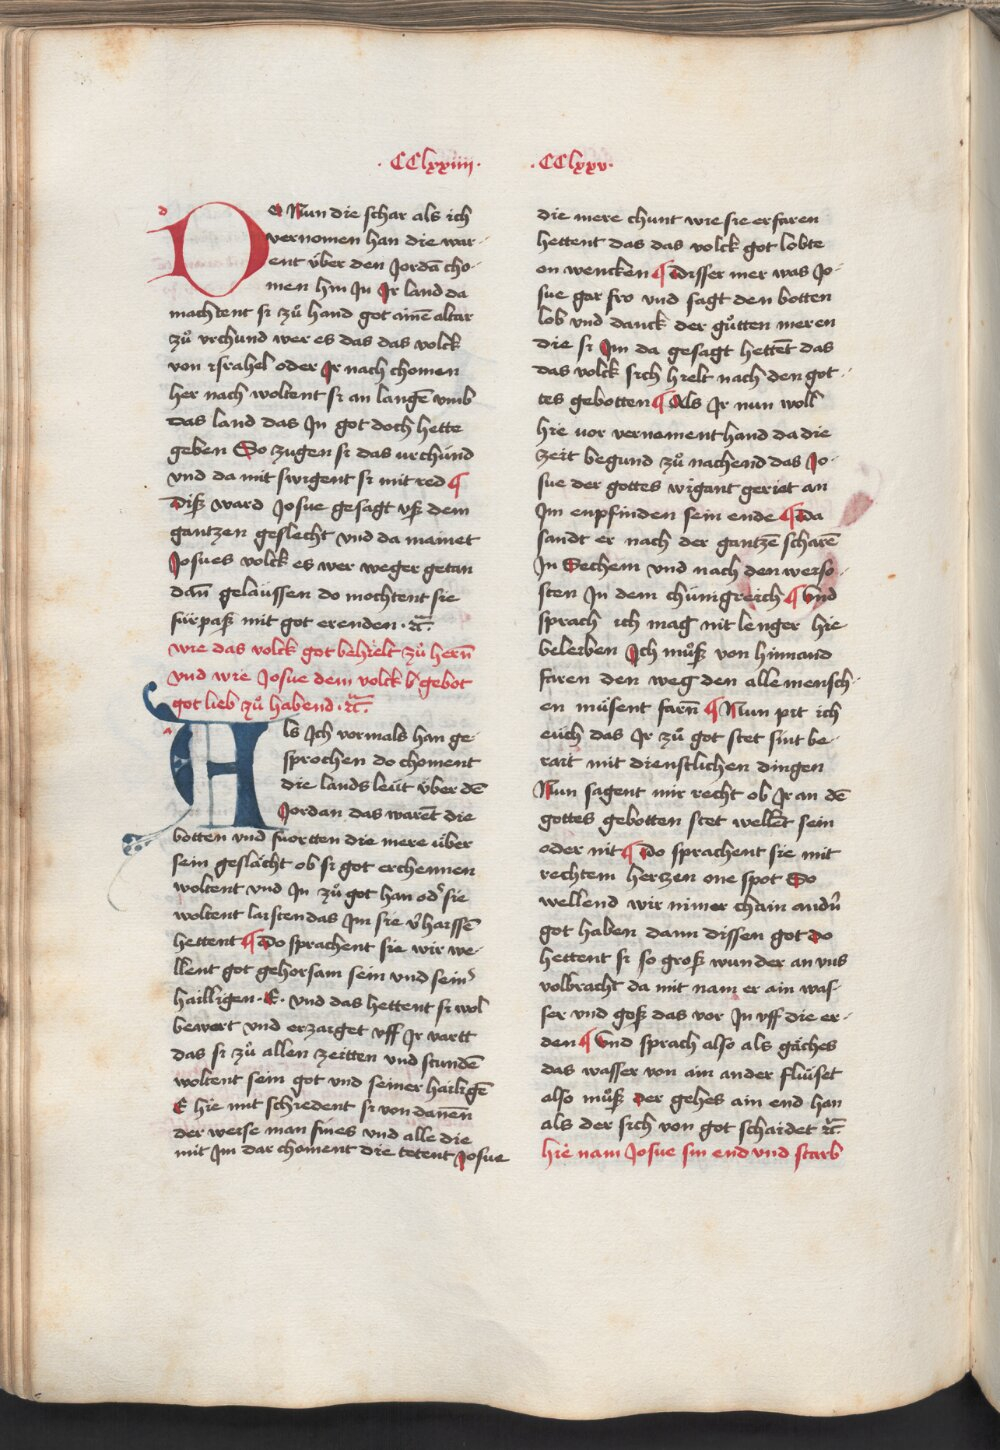 · CClxxiiii ·
· CClxxv ·
DO Nun die schar als ich
vernomen han die war-
ent über den Jordā cho-
men hin Jn Jr land da
machtent si zů hand got ainē altar
zů vrchund wer es das das volck
von israhel oder Jr nach chomen
her nach woltent si an langē vmb
das land das Jn got doch hette
geben So zugen si das urchünd
vnd da mit swigent si mit red ¶
Diß ward Josue gesagt vß dem
gantzen geslecht vnd da mainet
Josues volck es wer weger getan
dañ gelaussen do mochtent sie
fürpaß mit got erenden · ꝛc̄ ·
wie das volck got behielt zů herñ
vnd wie Josue dem volck b' gebot
got lieb zů habend · ꝛc̄ ·
Als Jch vormals han ge-
sprochen do choment
die landsleüt über dē
Jordan das warēt die
botten vnd fuortten die mere über
sein geslächt ob si got erchennen
woltent vnd Jn zů got han od' sie
woltent laistendas Jm sie v'haissē
hettent ¶ Do sprachent sie wir we-
llent got gehorsam sein vnd sein'
hailligen · E · vnd das hettent si wol
bewert vnd erzaiget vff Jr vartt
das si zů allen zeitten vnd stundē
woltent sein got vnd seiner hailigē
E hie mit schiedent si von danēn
der weise man finies vnd alle die
mit Jm dar choment die tetent Josue
die mere chunt wie sie erfaren
hettent das das volck got lobte
on wencken ¶ Disser mer was Jo-
sue gar fro vnd sagt den botten
lob vnd danck der gůtten meren
die si Jm da gesagt hettēt das
das volck sich hielt nach den got-
tes gebotten ¶ Als Jr nun woll
hie vor vernement hand da die
zeit begund zů nachend das Jo-
sue der gottes wigant geriet an
Jm enpfinden sein ende ¶ Da
sandt er nach der gantzē scharē
Jn Sechem vnd nach den weiso-
sten Jn dem chünigreich ¶ Vnd
sprach ich mag nit lenger hie
beleiben Jch můß von hinnand
faren den weg den alle mensch-
en müsent farñ ¶ Nun pit ich
eüch das Jr zů got stet sint be-
rait mit dienstlichen dingen
Nun sagent mir recht ob Jr an dē
gottes gebotten stet wellēt sein
oder nit ¶ Do sprachent sie mit
rechtem hertzen one spot So
wellend wir nimer chain andñ
got haben dann dissen got do
hettent si so groß wunder an vns
volbracht da mit nam er ain was-
ser vnd goß das vor Jn vff die er-
den ¶ Vnd sprach also als gäches
das wasser von ain ander flüset
also můß der gehes ain end han
als der sich von got schaidet ꝛc̄
hie nam Josue sin end vnd starb